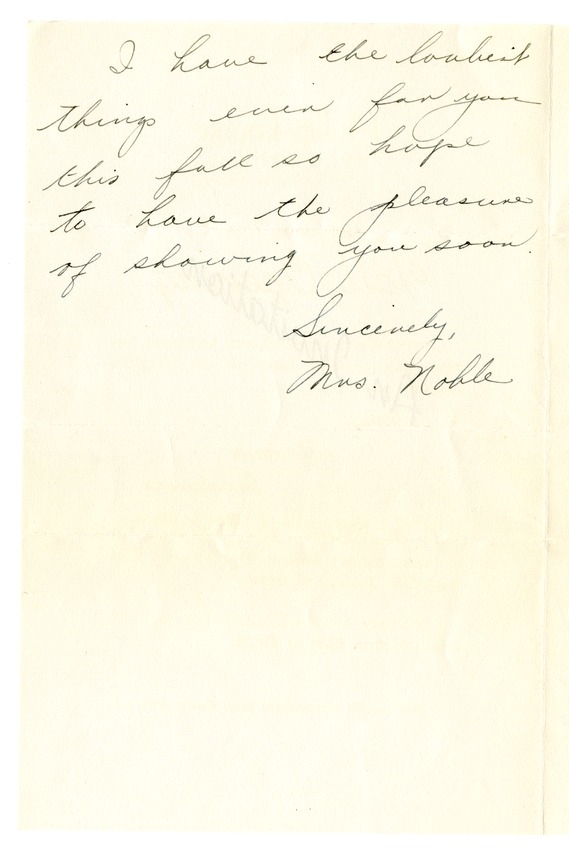 I have the loveliest
things ever for you
this fall so hope
to have the pleasure
of showing you soon.
Sincerely,
Mrs. Noble